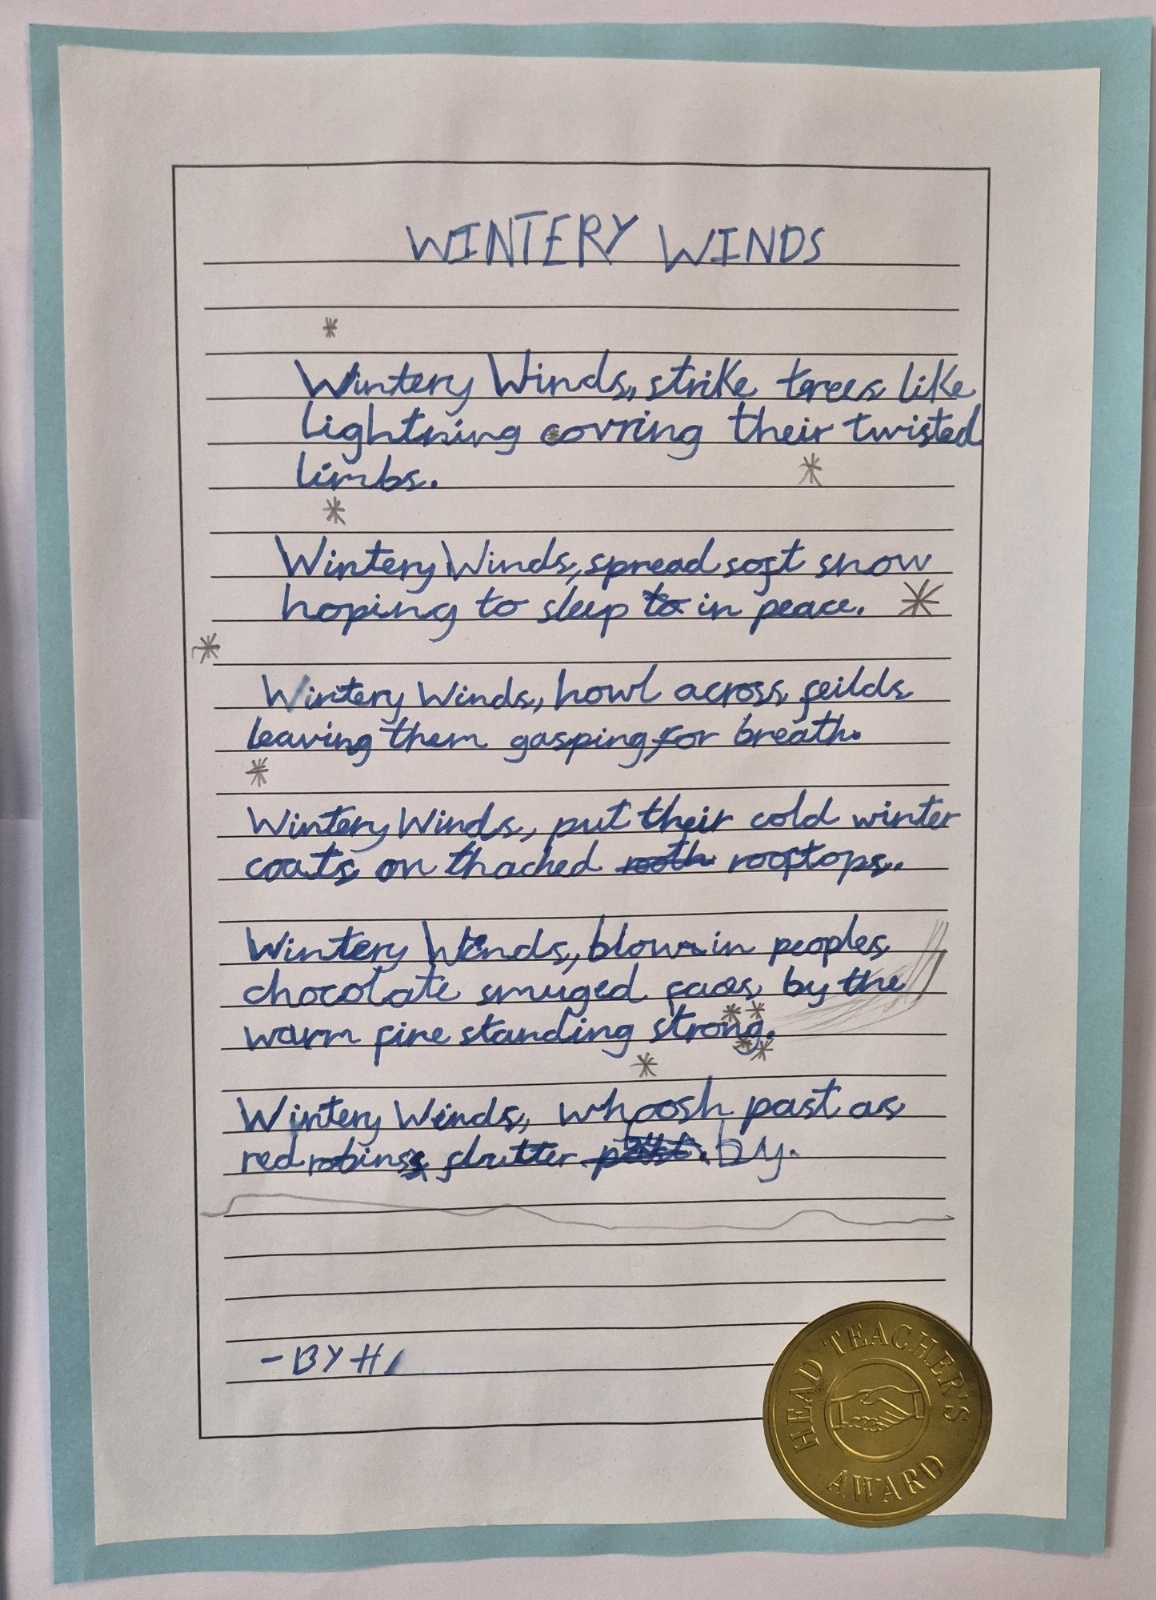 WINTERY WINDS
Wintery Winds, strike trees like
lightning covring their twisted
limbs.
Wintery Winds, spread soft snow
hoping to sleep to in peace.
Wintery Winds, howl across feilds
leaving them gasping for breath.
Wintery Winds, put their cold winter
coats on thached rooftops.
Wintery Winds, blow in peoples
chocolate smuged faces by the
warm fire standing strong.
Wintery Winds, whoosh past as
red robins flutter past. by.
- BY H
HEAD TEACHER'S
AWARD